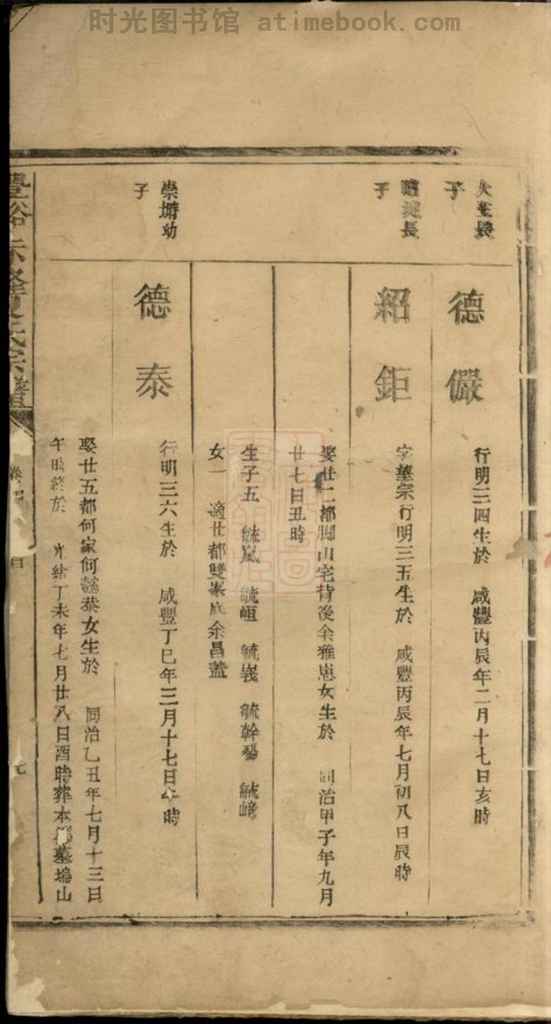 时光图书馆 atimebook.com
長
子
德儼
行明三四生於 咸豐丙辰年二月十七日亥時
長
子
紹鉅
字華宗行明三五生於 咸豐丙辰年七月初八日辰時
娶廿二都 山宅背後余雅崽女生於 同治甲子年九月
廿七日丑時
生子五 毓嵐 毓峘 毓 毓幹 毓
女一 適廿都雙 余昌蓋
崇 幼
子
德泰
行明三六生於 咸豐丁巳年三月十七日午時
娶廿五都何家何 女生於 同治乙丑年七月十三日
午時終於 光緒丁未年七月廿八日酉時葬本 墓塢山
豐谿 夏氏宗譜
卷